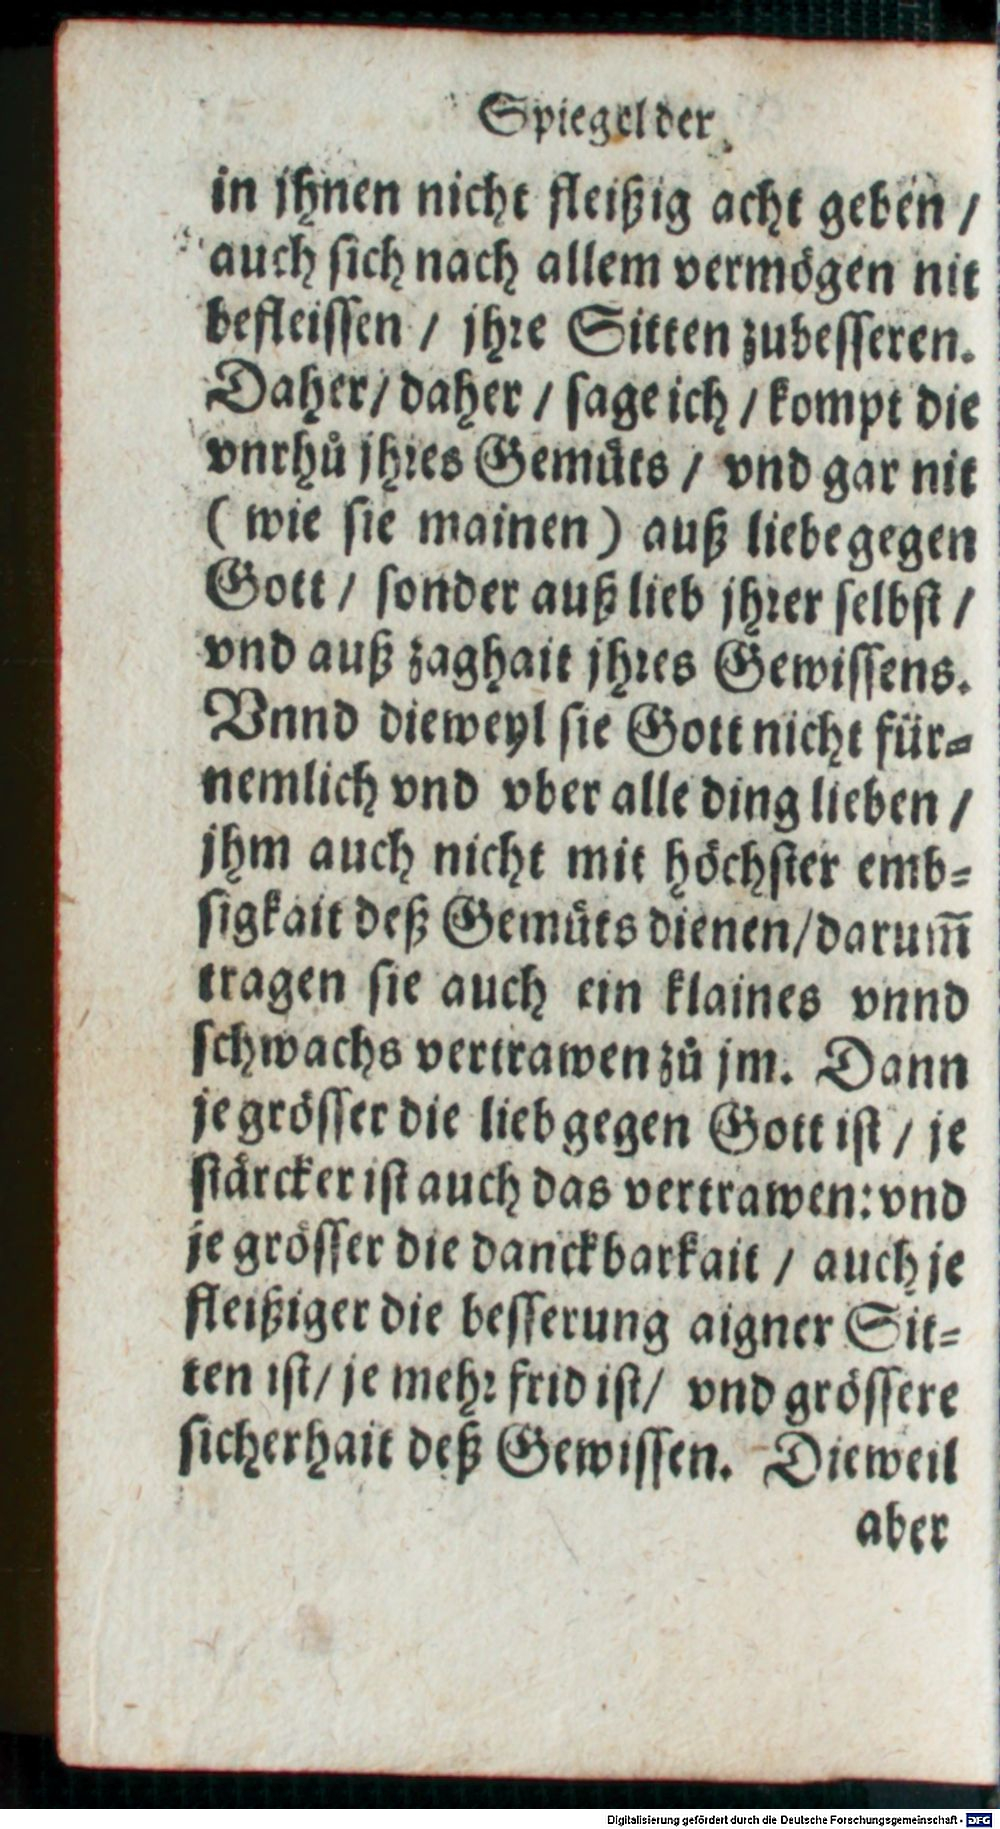 Spiegel der
in jhnen nicht fleißig acht geben /
auch sich nach allem vermögen nit
befleissen / jhre Sitten zubesseren.
Daher / daher / sage ich / kompt die
vnrhů jhres Gemüts / vnd gar nit
( wie sie mainen ) auß liebe gegen
Gott / sonder auß lieb jhrer selbst /
vnd auß zaghait jhres Gewissens.
Vnnd dieweyl sie Gott nicht für=
nemlich vnd vber alle ding lieben /
jhm auch nicht mit höchster emb=
sigkait deß Gemüts dienen / darum̃
tragen sie auch ein klaines vnnd
schwachs vertrawen zů jm. Dann
je grösser die lieb gegen Gott ist / je
stärcker ist auch das vertrawen: vnd
je grösser die danckbarkait / auch je
fleißiger die besserung aigner Sit=
ten ist / je mehr frid ist / vnd grössere
sicherhait deß Gewissen. Dieweil
aber
Digitalisierung gefördert durch die Deutsche Forschungsgemeinschaft - DFG